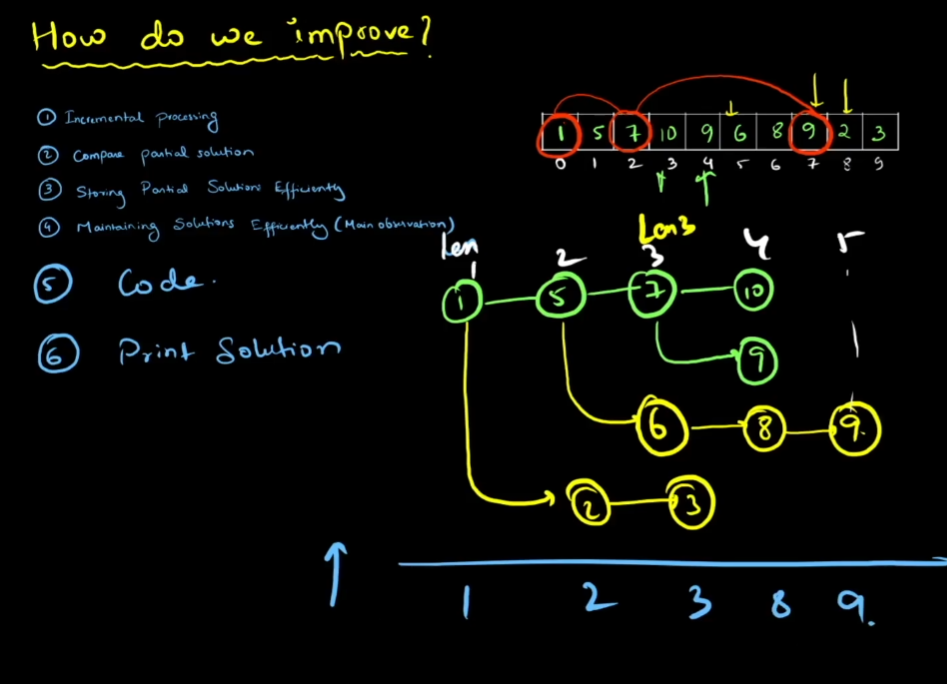 How do we improve?
① Incremental processing
② Compare partial solution
③ Storing Partial Solutions Efficiently
④ Maintaining Solutions Efficiently (Main observation)
⑤ Code.
⑥ Print Solution
1 5 7 10 9 6 8 9 2 3
0 1 2 3 4 5 6 7 8 9
Len3
Len 1 2 3 4 5
1 5 7 10
9
6 8 9.
2 3
1 2 3 8 9.